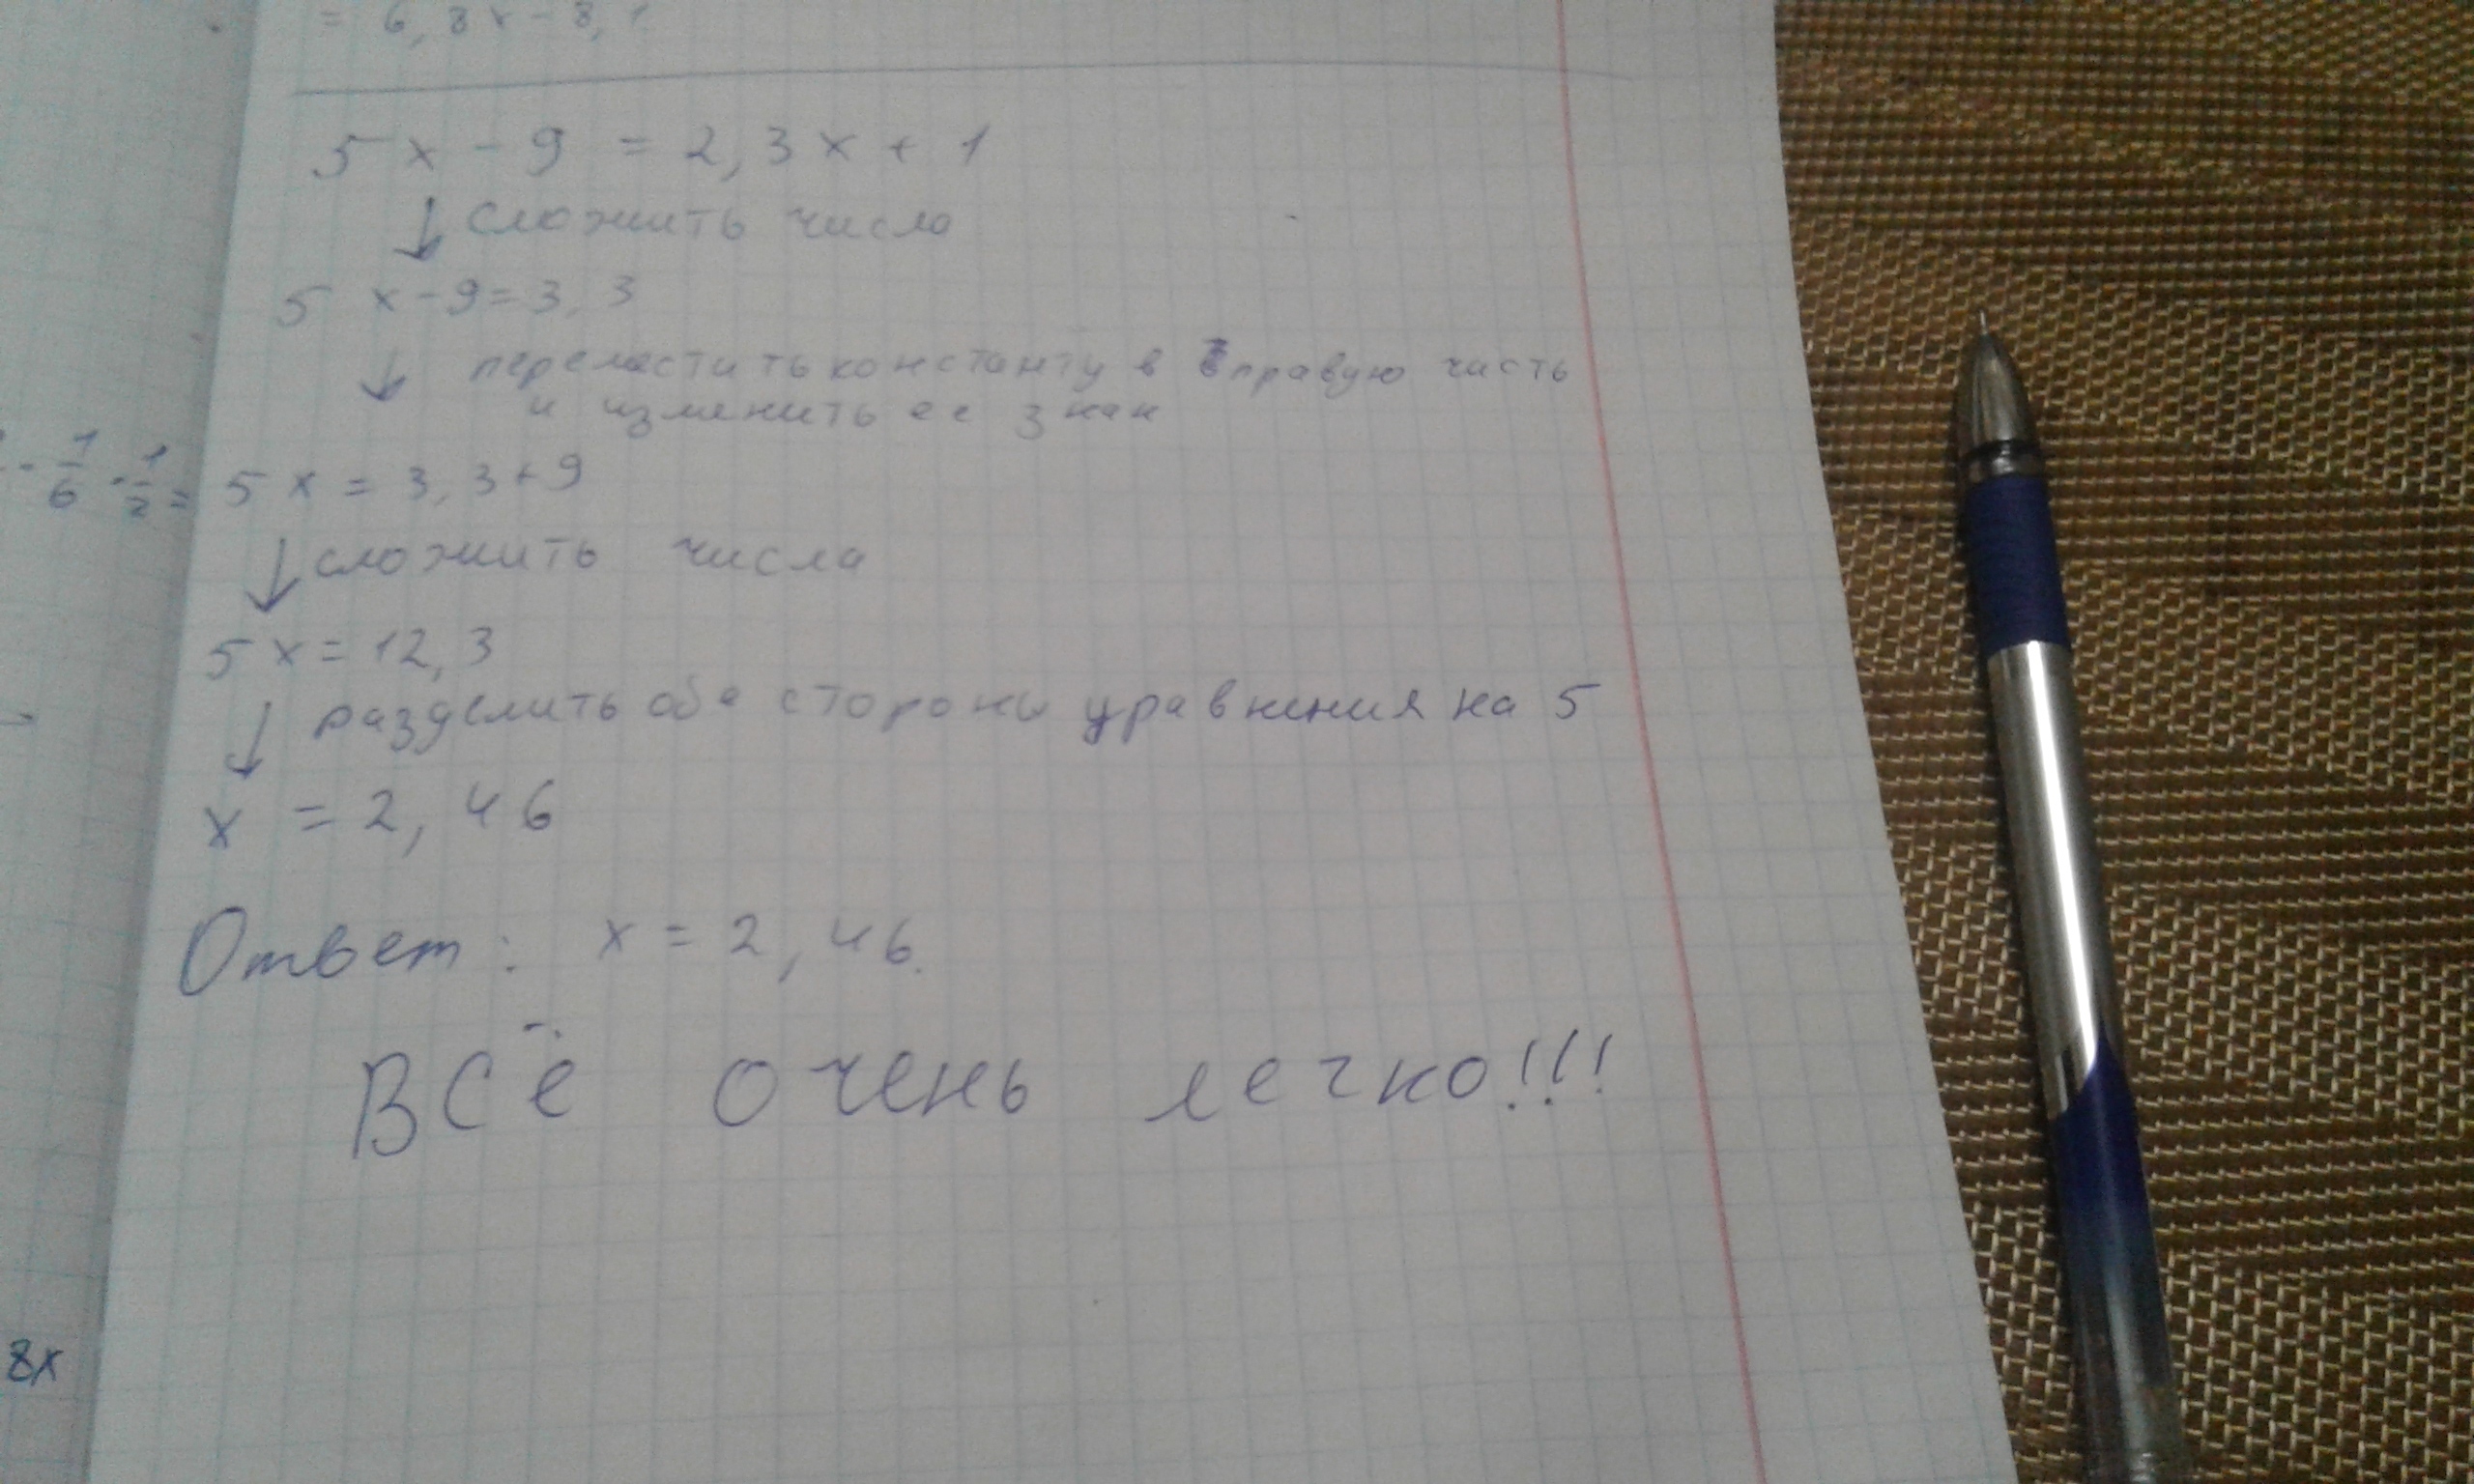 = 6,8x - 8,1
5x - 9 = 2,3x + 1
↓ сложить числа
5x - 9 = 3,3
↓ переместить константу в правую часть
и изменить ее знак
- 1/6 · 1/2 =
5x = 3,3 + 9
↓ сложить числа
5x = 12,3
↓ разделить оба стороны уравнения на 5
x = 2,46
Ответ: x = 2,46.
Всё очень легко!!!
8x